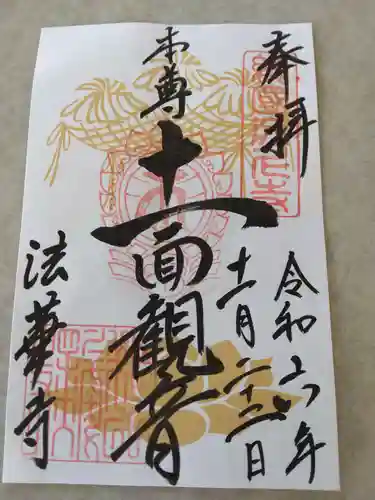 奉拝
令和六年
十一月二十二日
本尊
十一面観音
法華寺